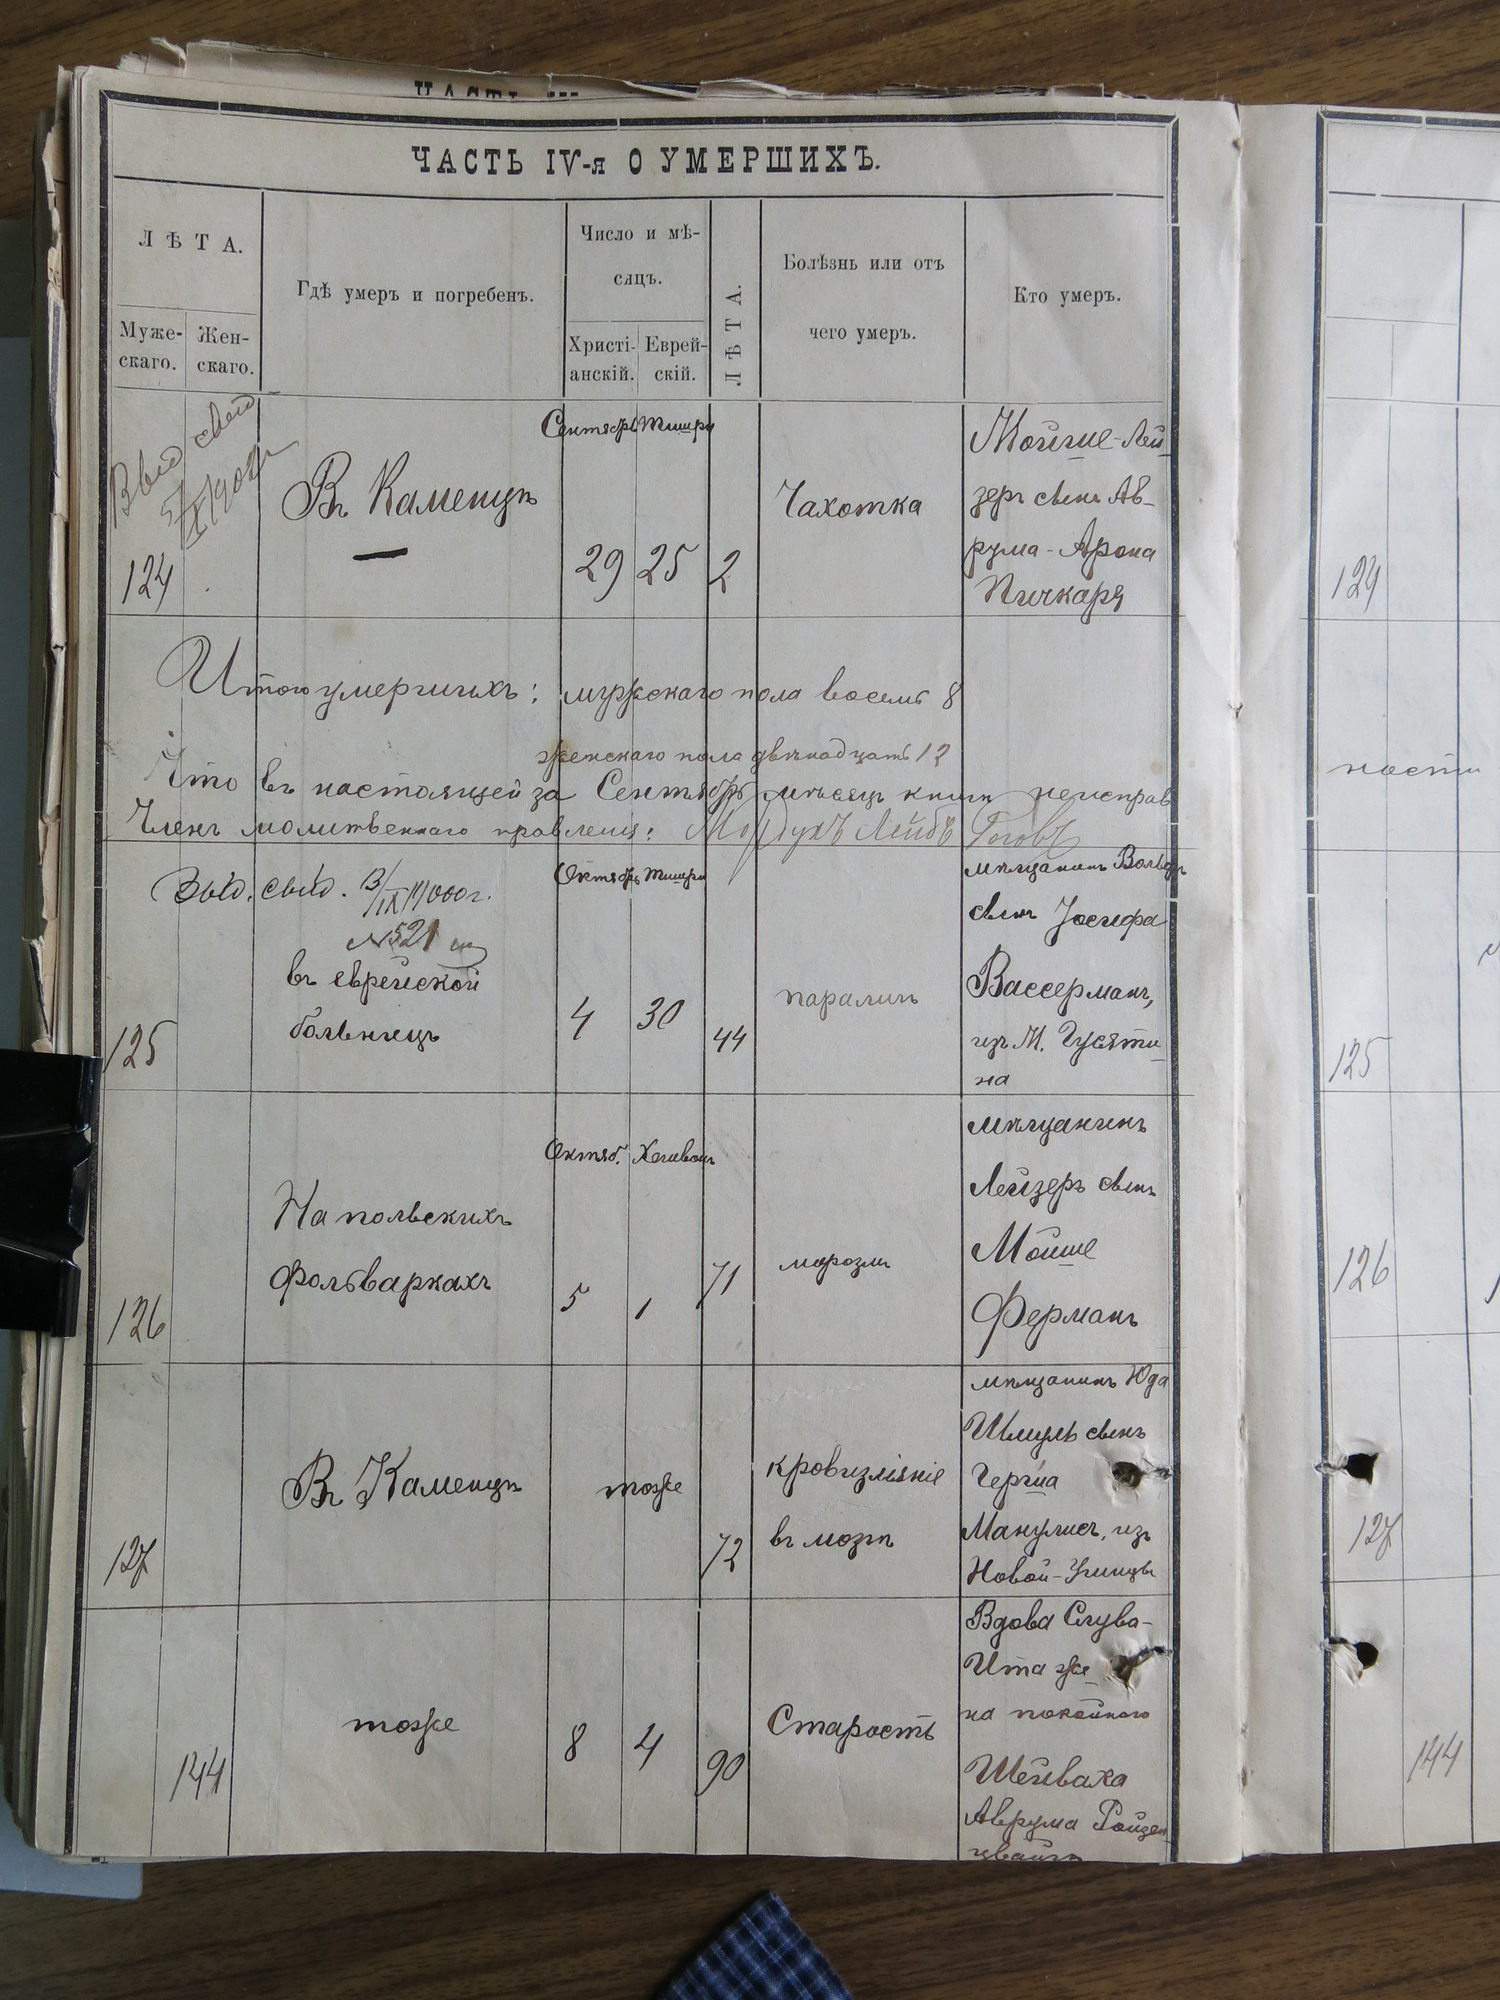 ЧАСТЬ IV-я О УМЕРШИХЪ.
ЛѢТА.
Муже-
скаго.
Жен-
скаго.
Гдѣ умеръ и погребенъ.
Число и мѣ-
сяцъ.
Христі-
анскій.
Еврей-
скій.
ЛѢТА.
Болѣзнь или отъ
чего умеръ.
Кто умеръ.
Выд свид
124
Въ Каменцѣ
Сентябрь Тишри
29 25 2
Чахотка
Мойше-Лей-
зеръ сынъ Ав-
рума-Арона
Пичкаря
124
Итого умершихъ: мужскаго пола восемь 8
женскаго пола двѣнадцать 12
Что въ настоящей за Сентябрь мѣсяцъ книги неисправ
ности
Членъ молитвеннаго правленія: Мордухъ Лейбъ
Выд. свид. 13/IX 1900 г.
№521
125
въ еврейской
больницѣ
Октябрь Тишри
4 30 44
параличъ
мѣщанинъ Вольфъ
сынъ Іосифа
Вассерманъ,
изъ М. Гусяти-
на
125
126
На польскихъ
фольваркахъ
Октяб. Хешвонъ
5 1 71
мѣщанинъ
Лейзеръ сынъ
Мойше
Ферманъ
126
127
Въ Каменцѣ
тоже
72
кровизліяніе
въ мозгъ
мѣщанинъ Юда
Шмуль сынъ
Герша
Манулисъ, изъ
Новой-Ушицы
127
144
тоже
8 4 90
Старость
Вдова Слува-
Ита же-
на покойнаго
Шейваха
Аврума Ройзен-
цвайга
144